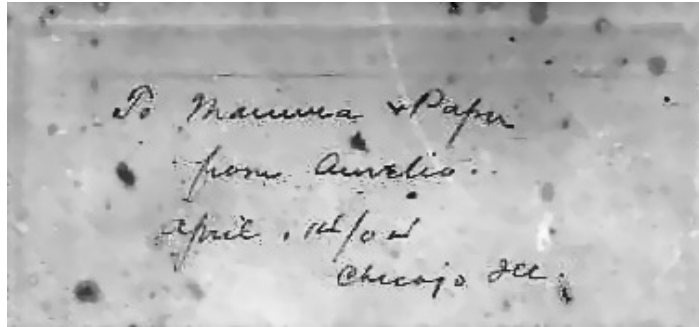 To Mamma & Papa
from Aurelio.
April, 1st/04
Chicago Ill.